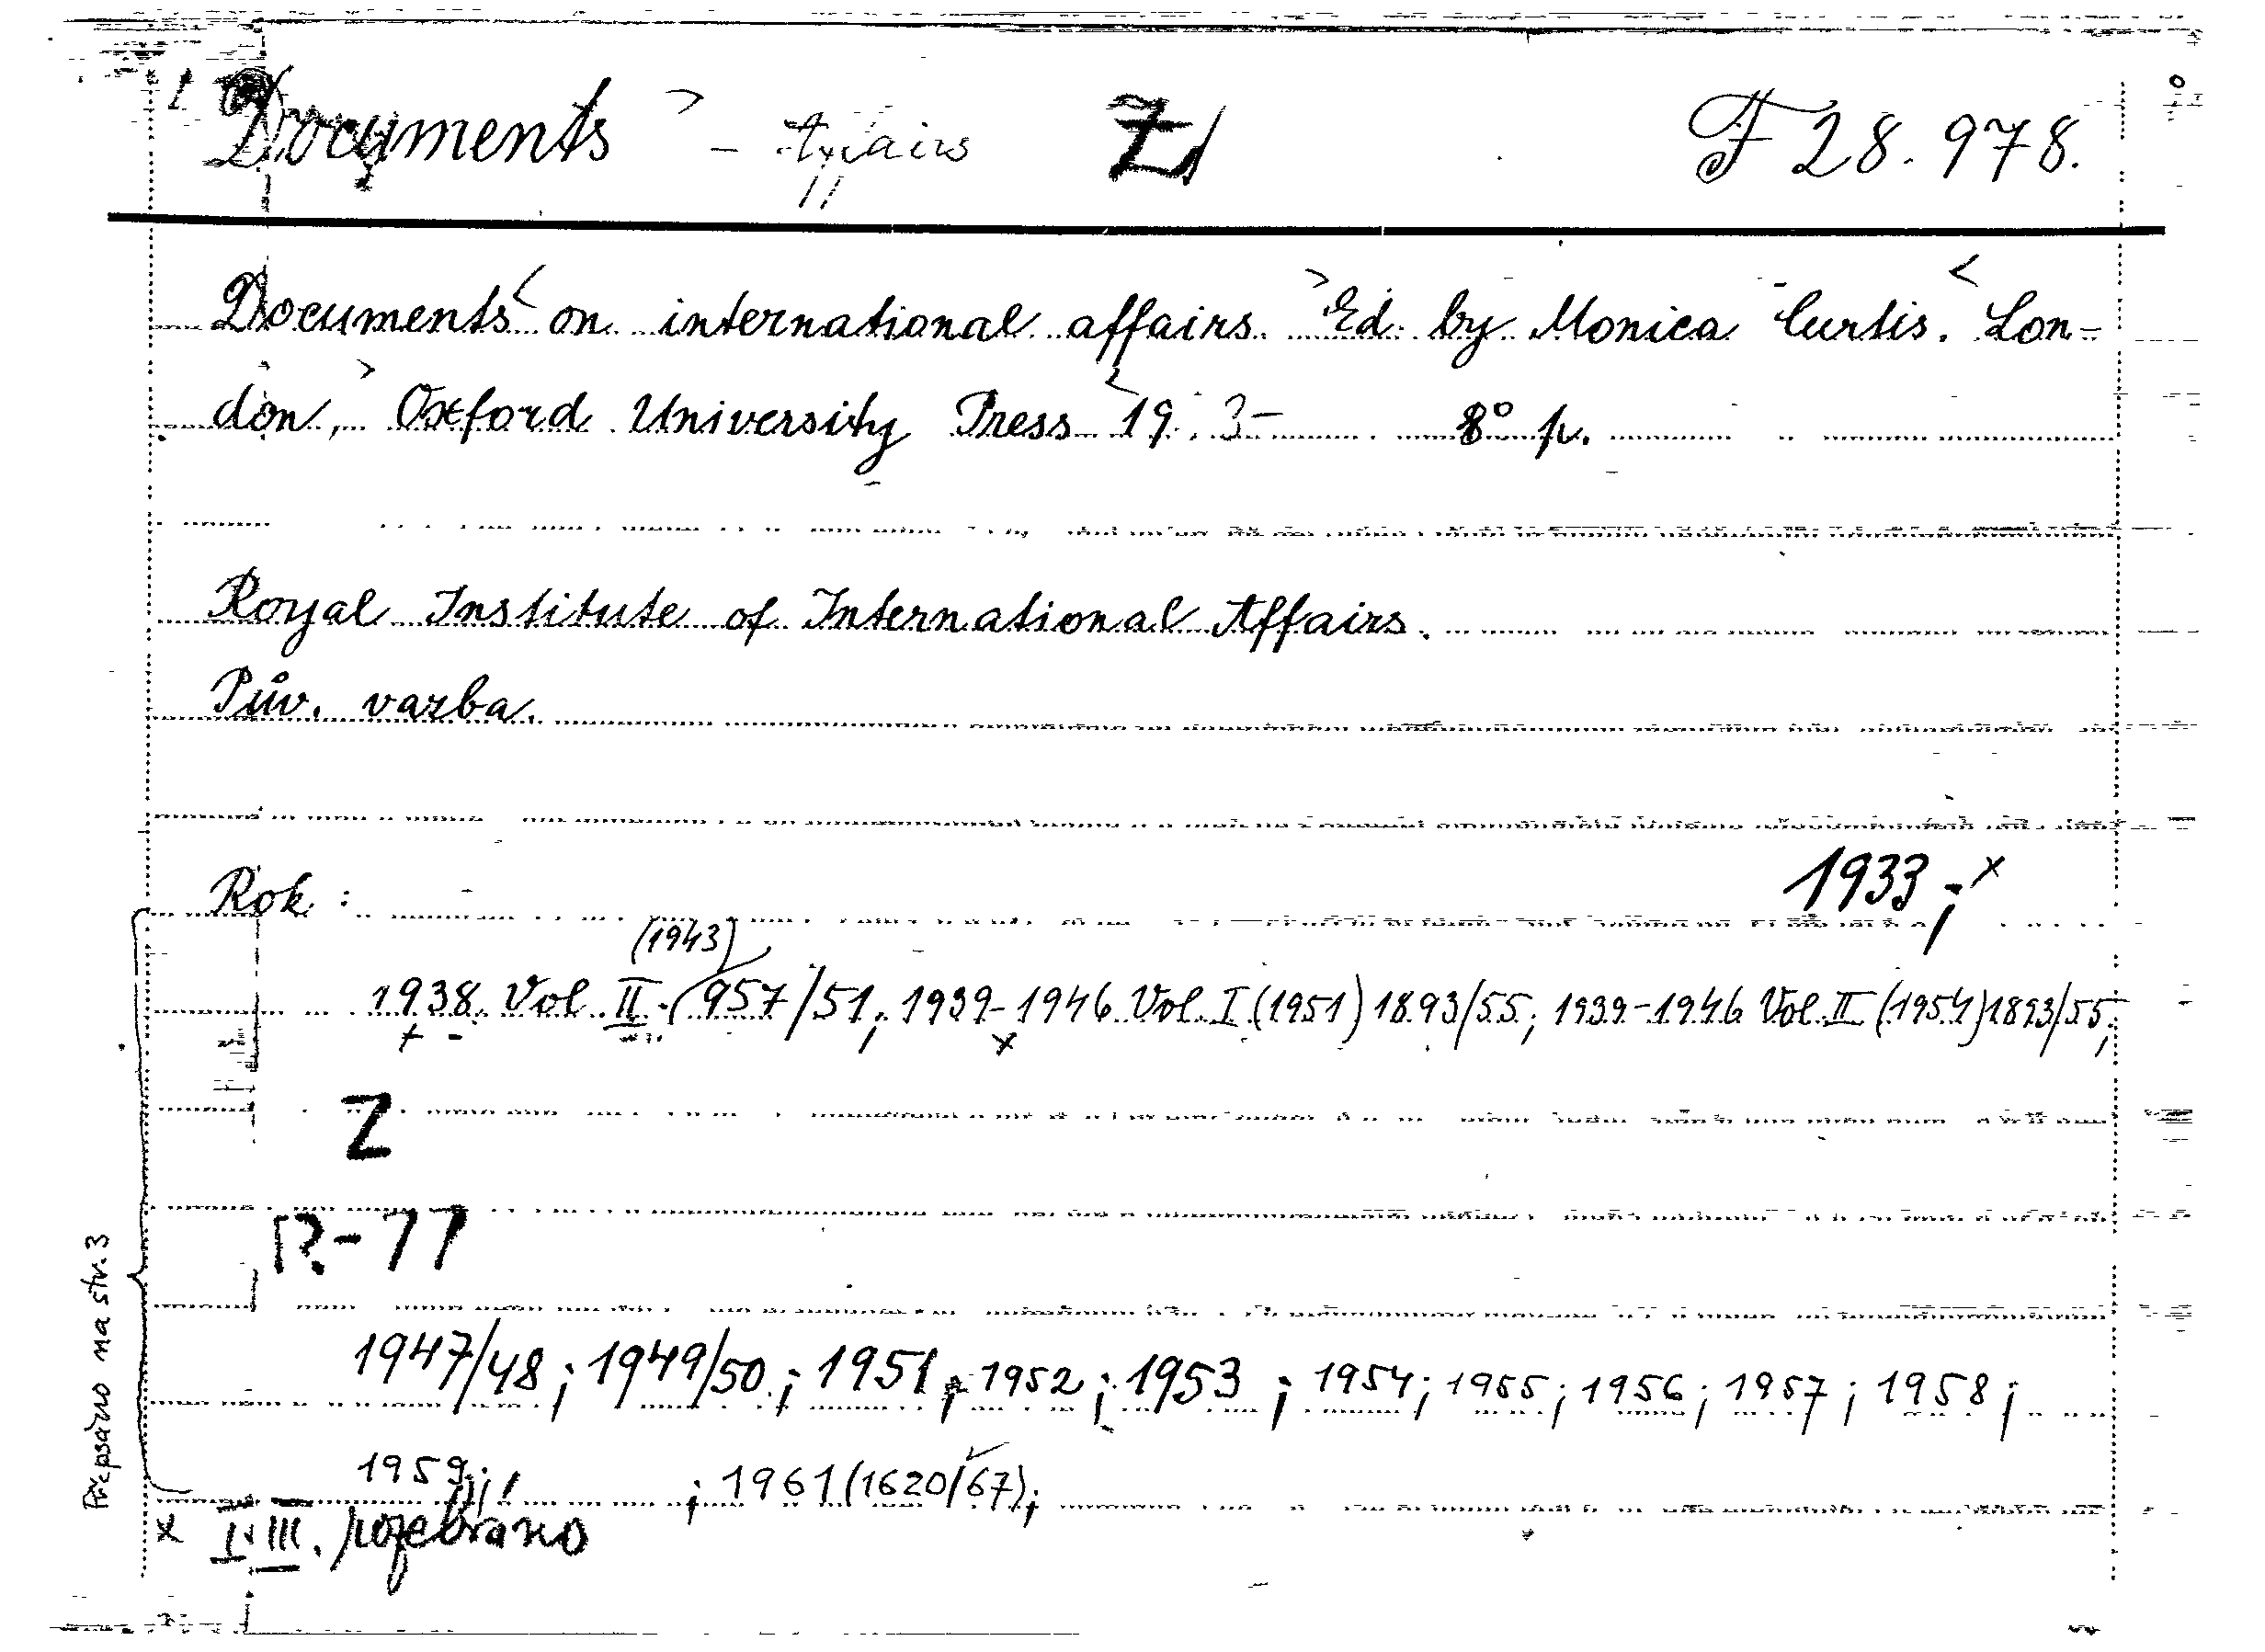 Documents - Affairs Z F 28.978.
Documents on international affairs. Ed. by Monica Curtis. Lon-
don, Oxford University Press 19.3- 8° p.
Royal Institute of International Affairs.
Pův. vazba.
Rok: 1933; x
(1943)
1938. Vol. II. (957/51; 1939-1946 Vol. I (1951) 1893/55; 1939-1946 Vol. II (1954) 1893/55;
+ - x
Z
R-77
1947/48; 1949/50; 1951; 1952; 1953; 1954; 1955; 1956; 1957; 1958;
1959; ; 1961 (1620/67);
x I. III. rozebráno
Přepsáno na str. 3